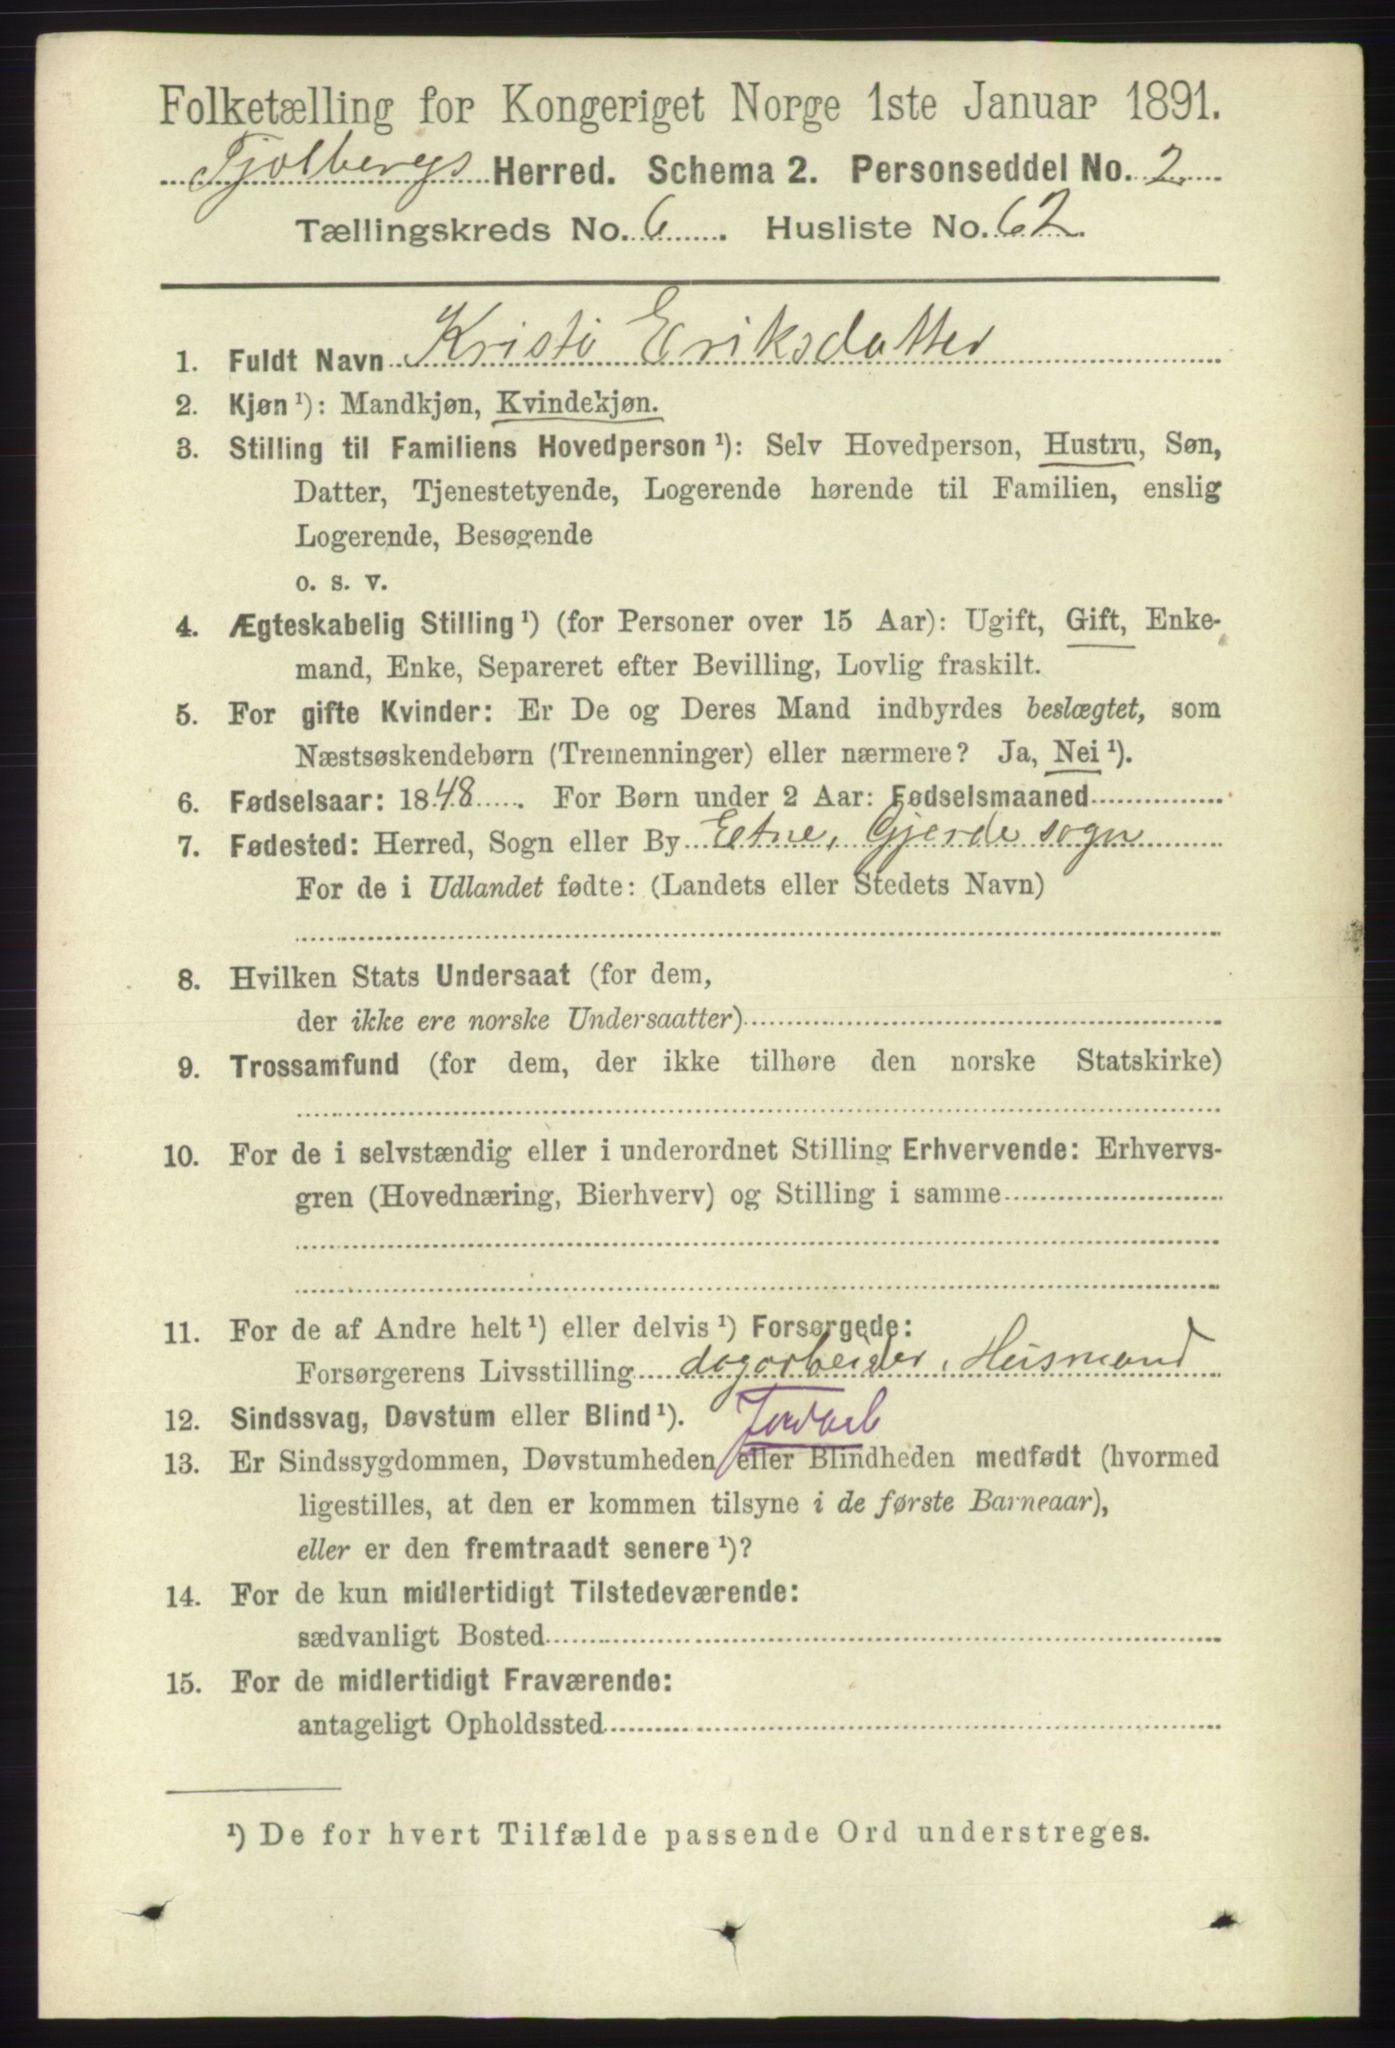 Folketælling for Kongeriget Norge 1ste Januar 1891.
Fjelbergs Herred. Schema 2. Personseddel No. 2
Tællingskreds No. 6. Husliste No. 62
1. Fuldt Navn Kristi Eriksdatter
2. Kjøn ¹): Mandkjøn, Kvindekjøn.
3. Stilling til Familiens Hovedperson ¹): Selv Hovedperson, Hustru, Søn,
Datter, Tjenestetyende, Logerende hørende til Familien, enslig
Logerende, Besøgende
o. s. v.
4. Ægteskabelig Stilling ¹) (for Personer over 15 Aar): Ugift, Gift, Enke-
mand, Enke, Separeret efter Bevilling, Lovlig fraskilt.
5. For gifte Kvinder: Er De og Deres Mand indbyrdes beslægtet, som
Næstsøskendebørn (Tremenninger) eller nærmere? Ja, Nei ¹).
6. Fødselsaar: 1848. For Børn under 2 Aar: Fødselsmaaned
7. Fødested: Herred, Sogn eller By Etne, Gjerde sogn
For de i Udlandet fødte: (Landets eller Stedets Navn)
8. Hvilken Stats Undersaat (for dem,
der ikke ere norske Undersaatter)
9. Trossamfund (for dem, der ikke tilhøre den norske Statskirke)
10. For de i selvstændig eller i underordnet Stilling Erhvervende: Erhvervs-
gren (Hovednæring, Bierhverv) og Stilling i samme
11. For de af Andre helt ¹) eller delvis ¹) Forsørgede:
Forsørgerens Livsstilling dagarbeider, Husmand
12. Sindssvag, Døvstum eller Blind ¹). Jordarb
13. Er Sindssygdommen, Døvstumheden eller Blindheden medfødt (hvormed
ligestilles, at den er kommen tilsyne i de første Barneaar),
eller er den fremtraadt senere ¹)?
14. For de kun midlertidigt Tilstedeværende:
sædvanligt Bosted
15. For de midlertidigt Fraværende:
antageligt Opholdssted
¹) De for hvert Tilfælde passende Ord understreges.